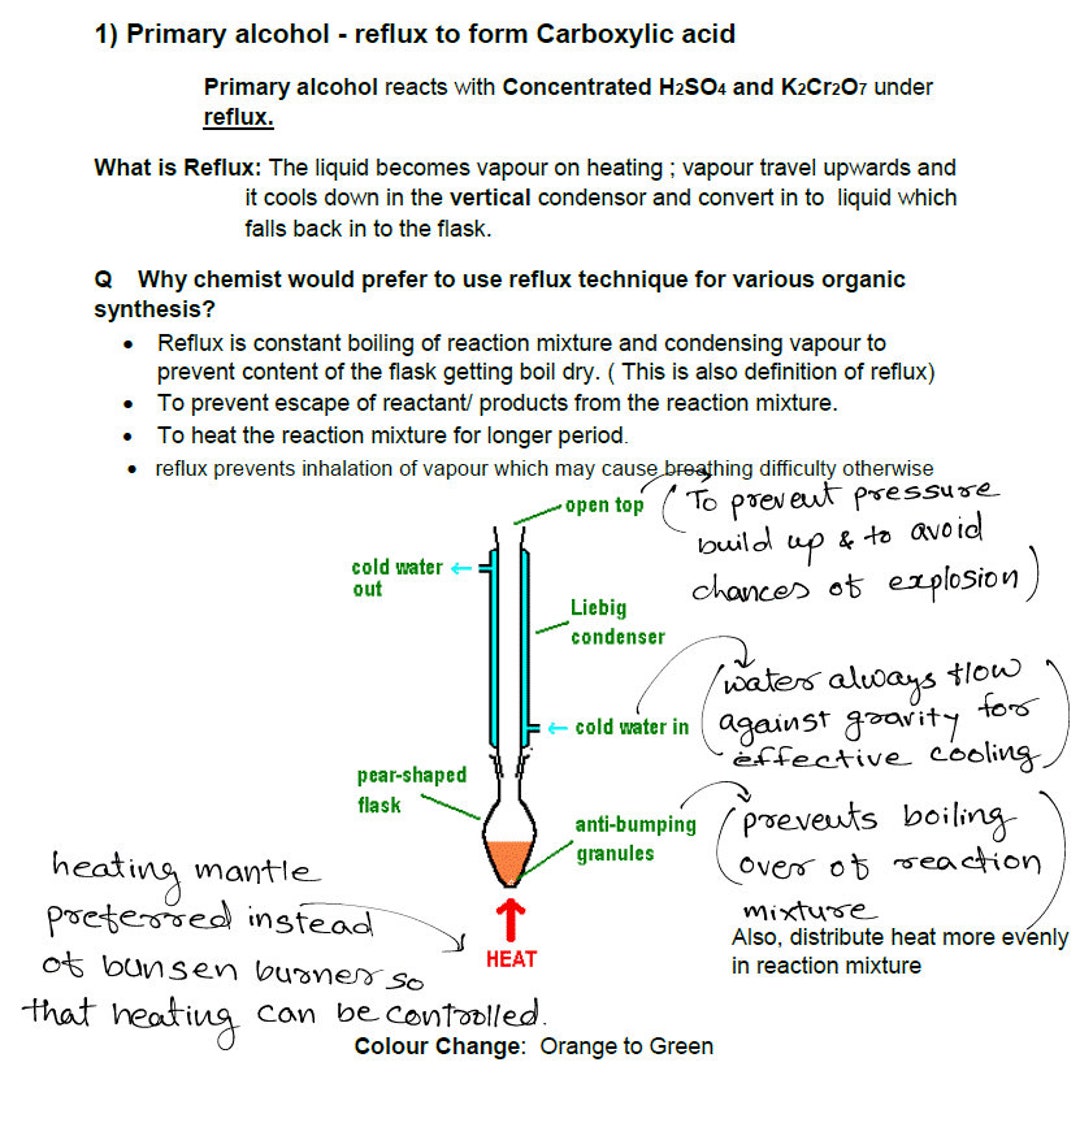 1) Primary alcohol - reflux to form Carboxylic acid
Primary alcohol reacts with Concentrated H2SO4 and K2Cr2O7 under
reflux.
What is Reflux: The liquid becomes vapour on heating ; vapour travel upwards and
it cools down in the vertical condensor and convert in to liquid which
falls back in to the flask.
Q Why chemist would prefer to use reflux technique for various organic
synthesis?
• Reflux is constant boiling of reaction mixture and condensing vapour to
prevent content of the flask getting boil dry. ( This is also definition of reflux)
• To prevent escape of reactant/ products from the reaction mixture.
• To heat the reaction mixture for longer period.
• reflux prevents inhalation of vapour which may cause breathing difficulty otherwise
open top
(To prevent pressure
build up & to avoid
chances of explosion)
cold water
out
Liebig
condenser
cold water in
(water always flow
against gravity for
effective cooling)
pear-shaped
flask
anti-bumping
granules
(prevents boiling
over of reaction
mixture
Also, distribute heat more evenly
in reaction mixture
heating mantle
preferred instead
of bunsen burner so
that heating can be controlled.
HEAT
Colour Change: Orange to Green